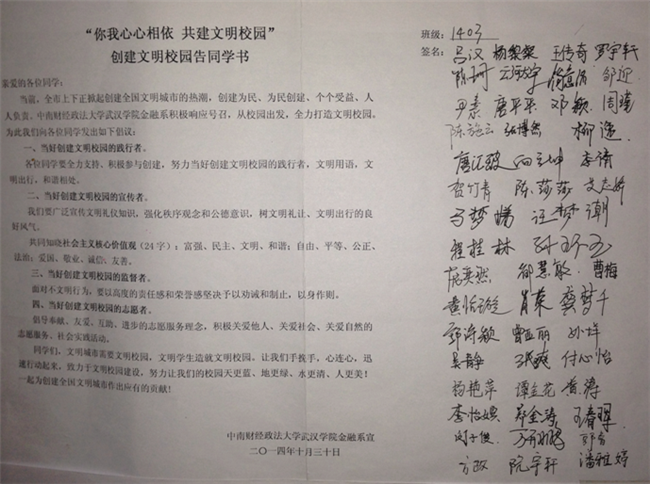 “你我心心相依 共建文明校园”
创建文明校园告同学书
亲爱的各位同学：
当前，全市上下正掀起创建全国文明城市的热潮，创建为民、为民创建、个个受益、人
人负责。中南财经政法大学武汉学院金融系积极响应号召，从校园出发，全力打造文明校园。
为此我们向各位同学发出如下倡议：
一、当好创建文明校园的践行者。
各位同学要全力支持、积极参与创建，努力当好创建文明校园的践行者，文明用语，文
明出行，和谐相处。
二、当好创建文明校园的宣传者。
我们要广泛宣传文明礼仪知识，强化秩序观念和公德意识，树文明礼让、文明出行的良
好风气。
共同知晓社会主义核心价值观（24字）：富强、民主、文明、和谐；自由、平等、公正、
法治；爱国、敬业、诚信、友善。
三、当好创建文明校园的监督者。
面对不文明行为，要以高度的责任感和荣誉感坚决予以劝诫和制止，以身作则。
四、当好创建文明校园的志愿者。
倡导奉献、友爱、互助、进步的志愿服务理念，积极关爱他人、关爱社会、关爱自然的
志愿服务、社会实践活动。
同学们，文明城市需要文明校园，文明学生造就文明校园，让我们手挽手，心连心，迅
速行动起来，致力于文明校园建设，努力让我们的校园天更蓝、地更绿、水更清、人更美！
一起为创建全国文明城市作出应有的贡献！
中南财经政法大学武汉学院金融系宣
二〇一四年十月三十日
班级：1403
签名：吕汉 杨粲粲 王传奇 罗宇轩
邹迎
尹素 唐平平 邓颖 周瑾
陈施云 张博然 柳逸
李倩
贺竹青 陈莎莎
马梦婕 汪梦潮
程桂林
庞奕然 邵慧敏 曹梅
黄怡璇 肖荣 龚梦千
郭诗敏 曾亚丽 孙祥
吴静 张爽 付心怡
杨艳萍 谭金花 黄涛
李怡娴 郑金涛 王春翠
阮宇轩 潘雅婷